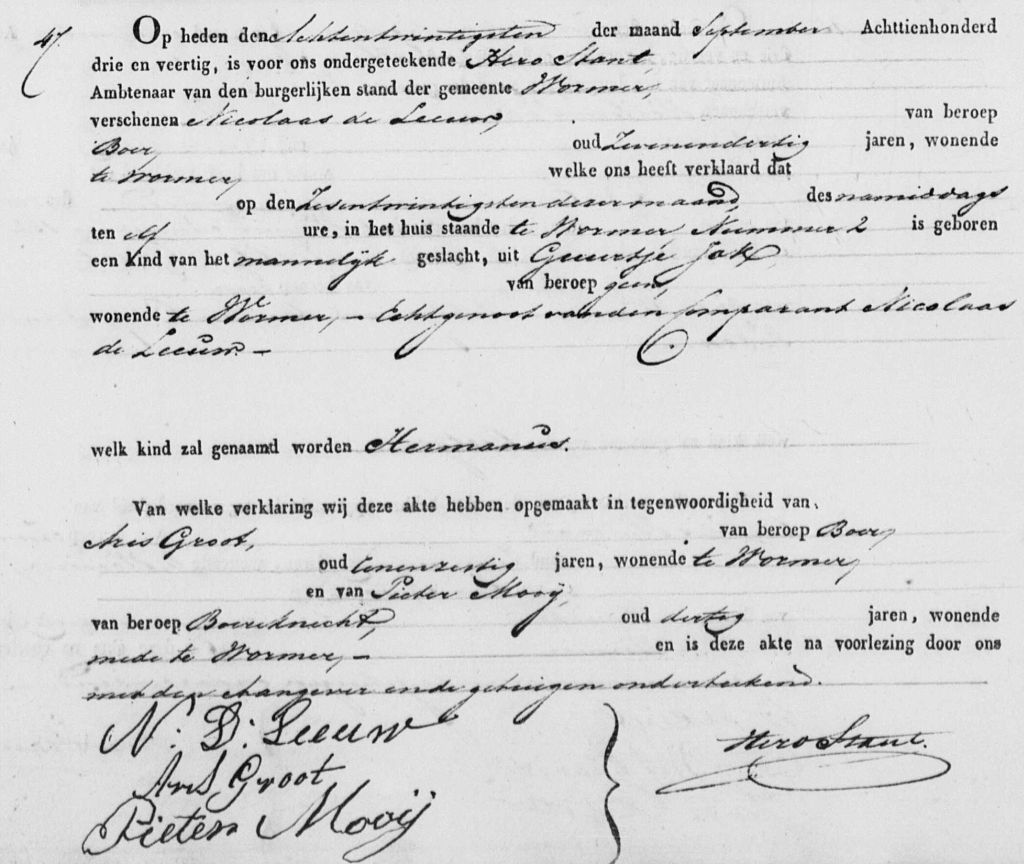 47
Op heden den Achtentwintigsten der maand September Achttienhonderd
drie en veertig, is voor ons ondergeteekende Hero Stant,
Ambtenaar van den burgerlijken stand der gemeente Wormer,
verschenen Nicolaas de Leeuw, van beroep
Boer, oud Zevenendertig jaren, wonende
te Wormer, welke ons heeft verklaard dat
op den Zesentwintigsten dezer maand, des namiddags
ten elf ure, in het huis staande te Wormer Nummer 2 is geboren
een kind van het mannelijk geslacht, uit Guurtje Jak,
van beroep geen,
wonende te Wormer, – Echtgenoot van den Comparant Nicolaas
de Leeuw. –
welk kind zal genaamd worden Hermanus.
Van welke verklaring wij deze akte hebben opgemaakt in tegenwoordigheid van
Aris Groot, van beroep Boer,
oud Eenenzestig jaren, wonende te Wormer,
en van Pieter Mooij,
van beroep Boereknecht, oud dertig jaren, wonende
mede te Wormer, – en is deze akte na voorlezing door ons
met den aangever en de getuigen onderteekend.
N: D: Leeuw
Aris Groot
Pieter Mooij
Hero Stant.